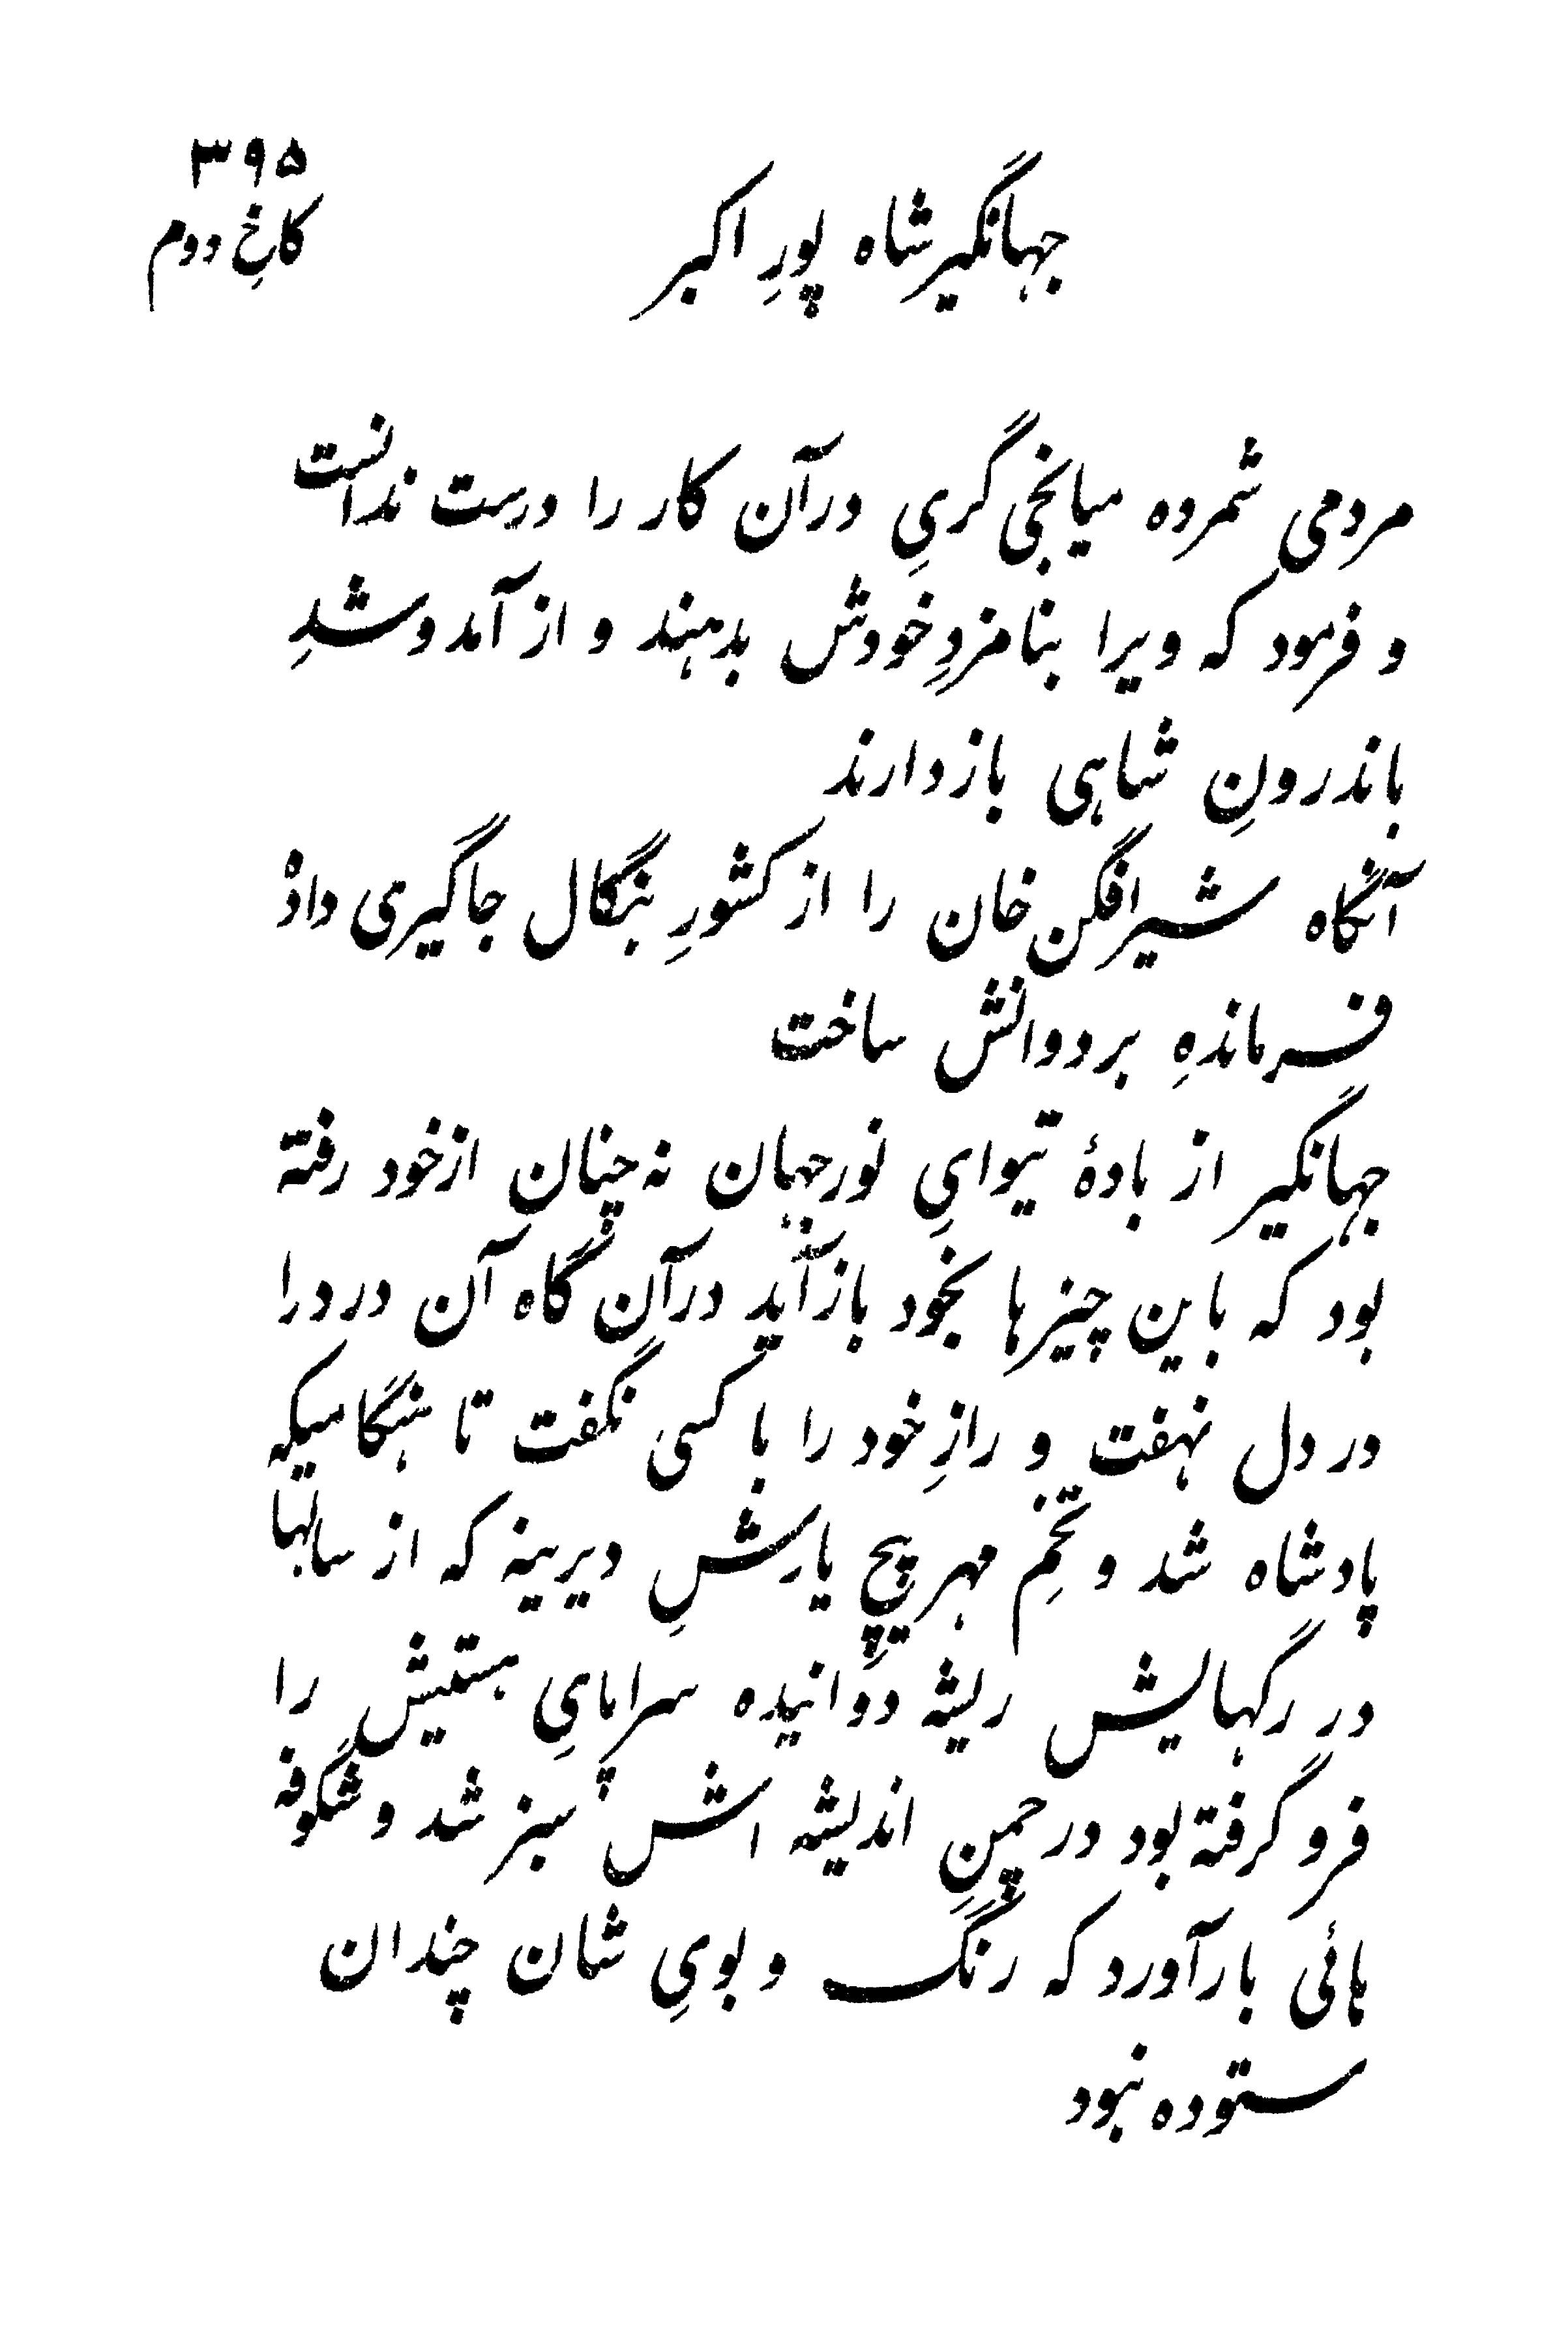 ۳۹۵
کاخ دوم
جهانگیر شاه پورِ اکبر
مردمی شمرده میانجی گریِ در آن کار را درست ندانست
و فرمود که ویرا بنامزدِ خودش بدهند و از آمد و شدِ
باندرونِ شاهی باز دارند
آنگاه شیر افگن خان را از کشورِ بنگال جاگیری داده
فرماندهِ بردوانش ساخت
جهانگیر از بادهٔ تیوایِ نور جهان نه چنانِ از خود رفته
بود که باین چیزها بخود باز آید در آن گاه آن درد را
در دل نهفت و رازِ خود را با کسی نگفت تا هنگامیکه
پادشاه شد و تخمِ مهر پیچِ یارشِ دیرینه که از سالها
در رگهایش ریشه دوانیده سراپایِ هستیش را
فرو گرفته بود در چمنِ اندیشه اش سبز شد و شگوفه
هائی بار آورد که رنگ و بویِ شان چندان
ستوده نبود